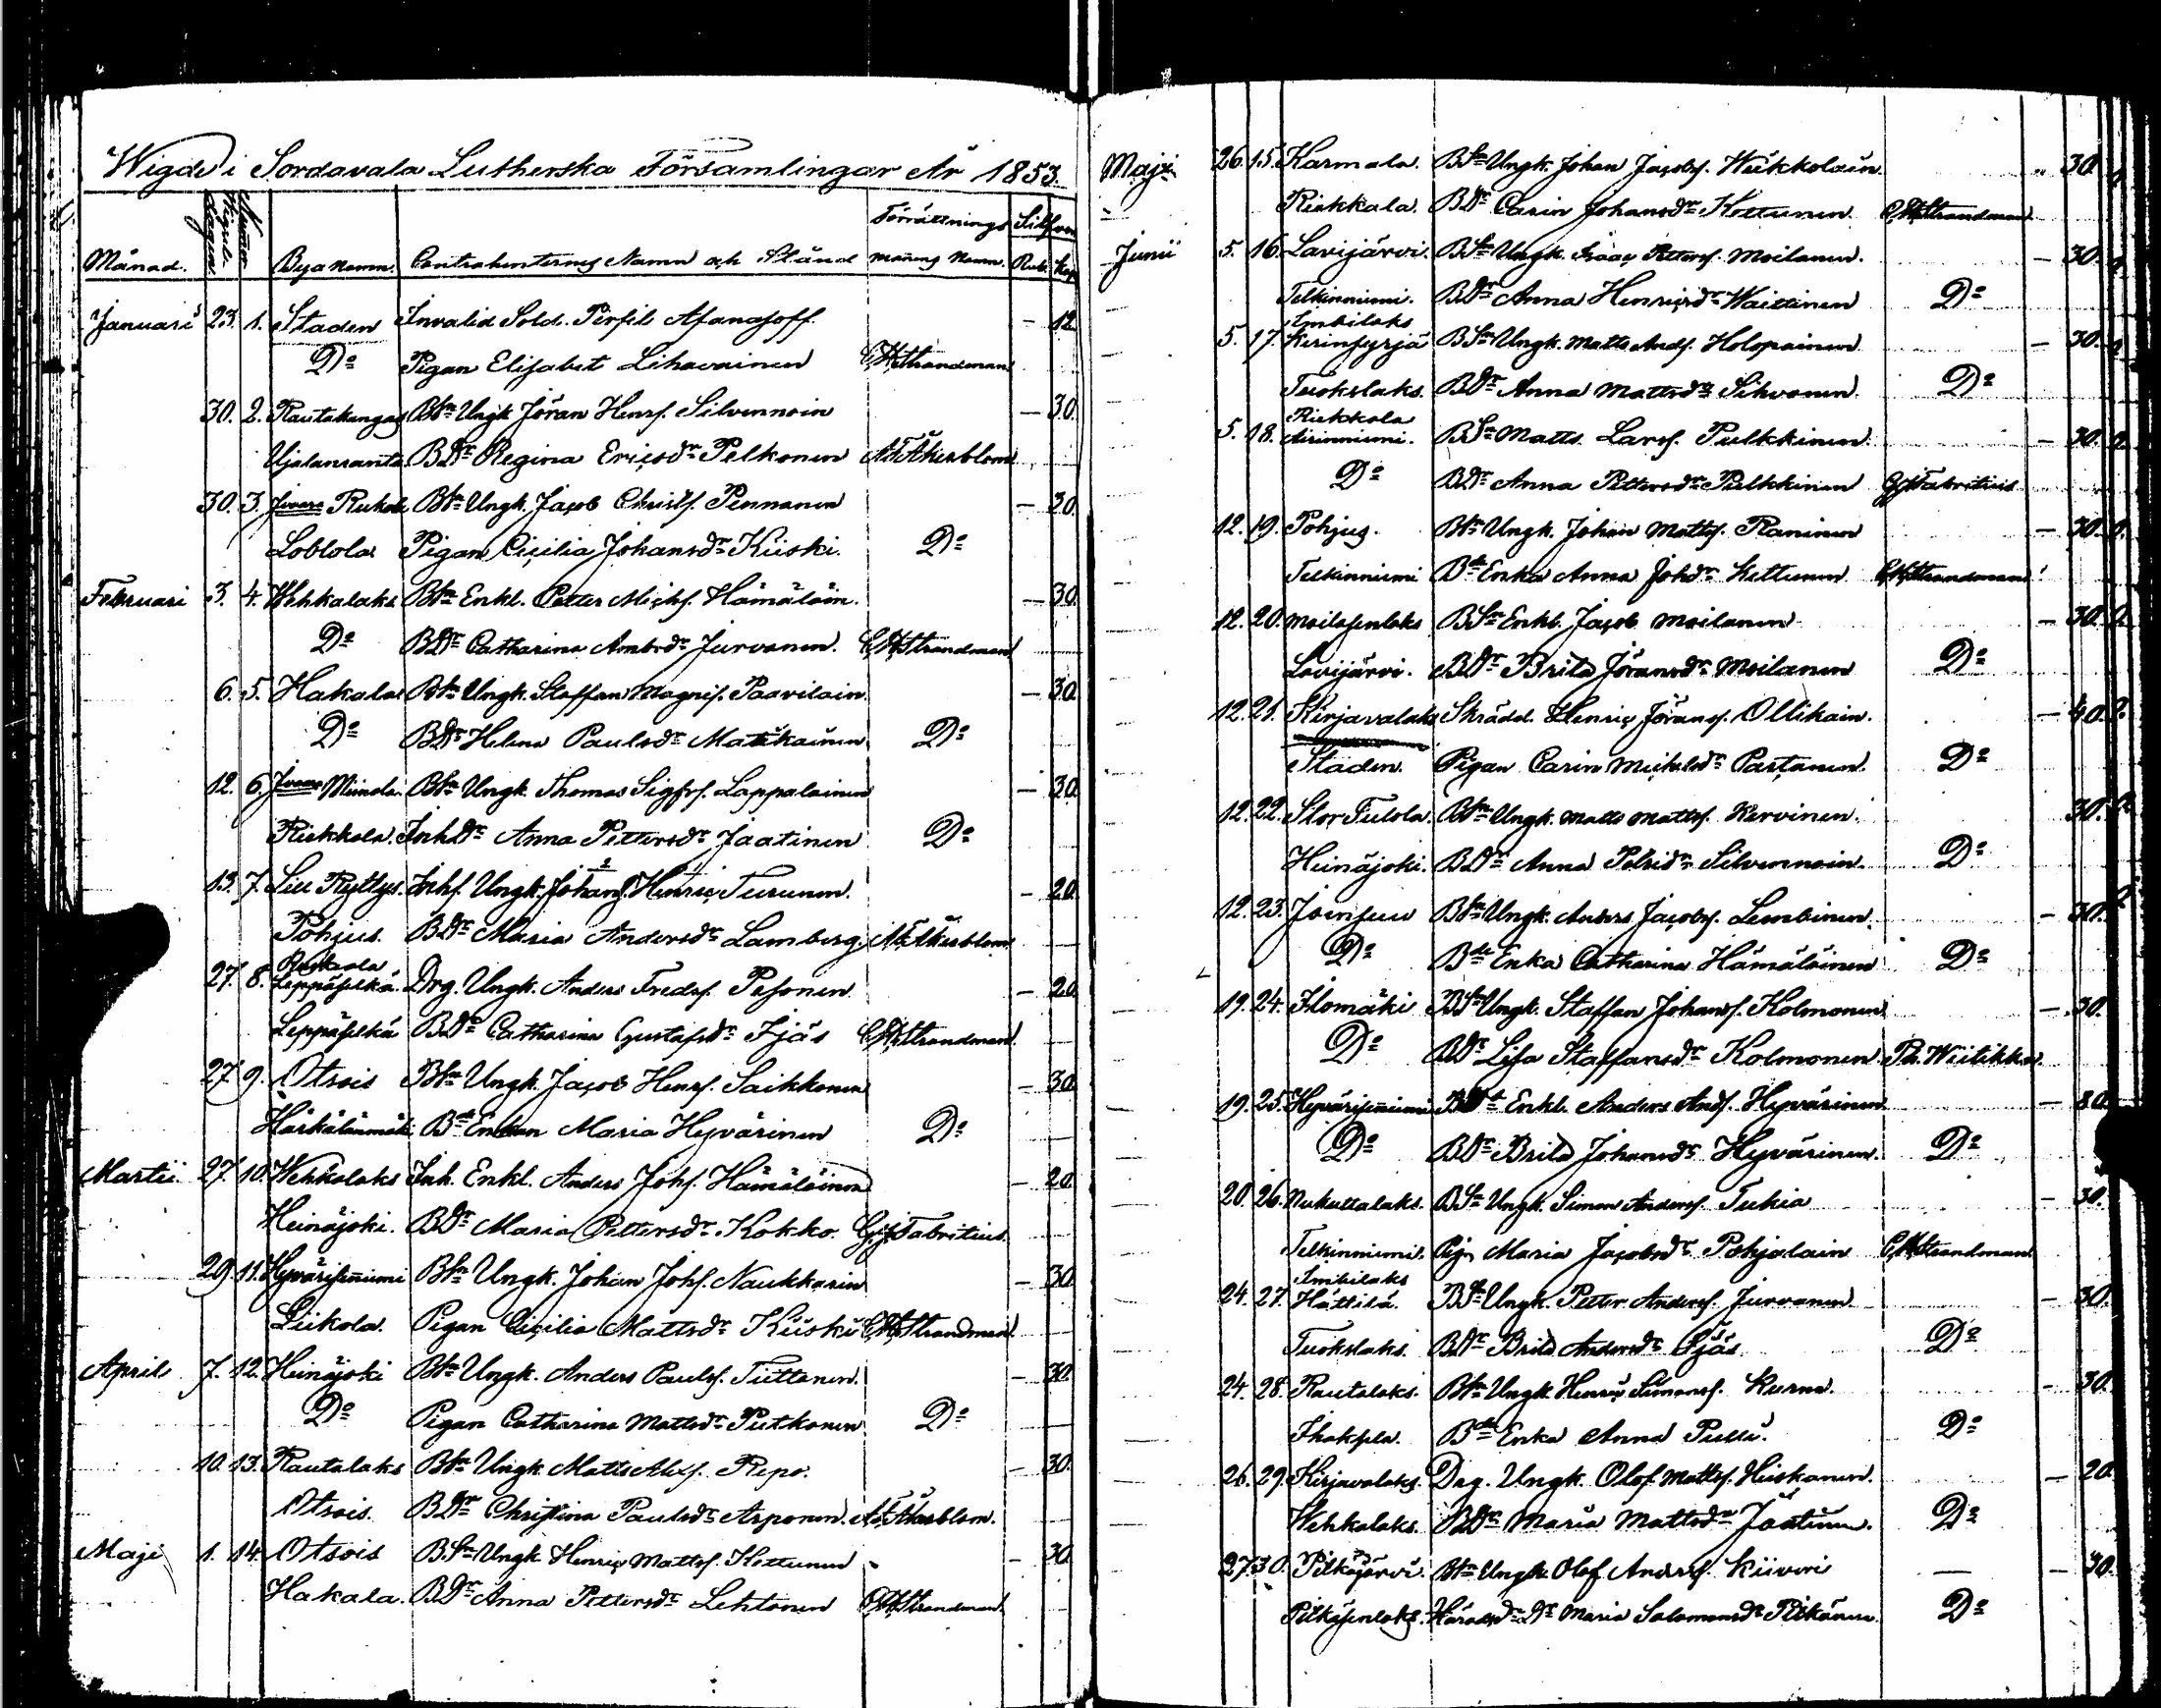 Wigde i Sordavala Lutherska Församlingar År 1853.
Månad. Wigsel-dagen. Byanamn. Contrahenternes Namn och Stånd Förrättnings mannens Namn. Silfver Rub. Kop.
Januari 23. 1. Staden Invalid Sold. Perfil Afanasoff. — 12.
Do Pigan Elisabet Lihavainen C.H.Strandman
30. 2. Rautakangas Bsn Ungk. Jöran Henrs. Silvennoin — 30.
Ujalanranta BDr Regina Ericsdr Pelkonen A.F.Åkerblom
30. 3. Rukola Bsn Ungk. Jacob Christs. Pennanen — 30.
Loblola Pigan Cicilia Johansdr Kiiski. Do
Februari 3. 4. Wehkalaks Bsn Enkl. Petter Michs. Hämäläin. — 30.
Do BDr Catharina Ambrdr Jurvanen. C.H.Strandman
6. 5. Hakala Bsn Ungk. Staffan Magnis. Paavilain. — 30.
Do BDr Helena Paulsdr Matikainen Do
12. 6. Miinola Bsn Ungk. Thomas Sigfrs. Lappalainen — 30.
Riekkola. Inh.Dr Anna Pettersdr Jaatinen Do
13. 7. Lill Ryttys. Inhs. Ungk. Johan Henric Turunen. — 20.
Pohjus. BDr Maria Andersdr Lamberg. A.F.Åkerblom
27. 8. Leppäselkä. Drg. Ungk. Anders Fredrs. Pesonen — 20.
Leppäselkä BDr Catharina Gustafsdr Ijäs C.H.Strandman.
27. 9. Otsois Bsn Ungk. Jacob Henrs. Saikkonen — 30.
Härkälänmäki Bde Enkan Maria Hyvärinen Do
Martii 27. 10. Wehkalaks Inh. Enkl. Anders Johs. Hämäläinen — 20.
Heinäjoki. BDr Maria Pettersdr Kokko. G.J.Fabritius.
29. 11. Hyvärisenniemi Bsn Ungk. Johan Johs. Naukkarin — 30.
Liikola. Pigan Cicilia Mattsdr Kiiski C.H.Strandman.
April 7. 12. Heinäjoki Bsn Ungk. Anders Pauls. Tiittanen. — 30.
Do Pigan Catharina Mattsdr Putkonen Do
10. 13. Rautalaks Bsn Ungk. Matts Alexs. Repo. — 30.
Otsois. BDr Christina Paulsdr Asponen. A.F.Åkerblom.
Maji 1. 14. Otsois BSn Ungk. Henric Mattss. Kettunen — 30.
Hakala. BDr Anna Pettersdr Lehtonen C.H.Strandman.
Maji 26. 15. Karmala. BSn Ungk. Johan Jacobs. Wiikkolain — 30.
Riekkala. BDr Carin Johansdr Kottunen C.H.Strandman
Junii 5. 16. Lavijärvi. BSn Ungk. Isaac Petters. Moilanen. — 30.
Telkinniemi. BDr Anna Henricsdr Waittinen Do
Imbilaks
5. 17. Kirinsyrjä BSn Ungk. Matts Ands. Holopainen — 30.
Tuokslaks. BDr Anna Mattsdr Sihvonen Do
Riekkola
5. 18. Airinniemi. BSn Matts Lars. Pulkkinen — 30.
Do BDr Anna Pettersdr Pulkkinen G.J.Fabritius
12. 19. Pohjus. Bsn Ungk. Johan Mattss. Raninen — 30.
Telkinniemi Bde Enka Anna Johdr Kettunen C.H.Strandman
12. 20. Moilasenlaks BSn Enkl. Jacob Moilanen — 30.
Lavijärvi. BDr Brita Jöransdr Moilanen Do
12. 21. Kirjavalaks Skrädd. Henric Jörans. Ollikain. — 40.
Staden. Pigan Carin Michelsdr Partanen. Do
12. 22. Stor Tulola. Bsn Ungk. Matts Mattss. Kervinen. 30.
Heinäjoki. BDr Anna Petrisdr Silvennoin. Do
12. 23. Joensuu Bsn Ungk. Anders Jacobs. Lembinen. — 30.
Do Bde Enka Catharina Hämäläinen Do
19. 24. Ilomäki BSn Ungk. Staffan Johans. Kolmonen — 30.
Do BDr Lisa Staffansdr Kolmonen Ph. Wiitikka
19. 25. Hyvärisenniemi Enkl. Anders Ands. Hyvärinen — 80.
Do BDr Brita Johansdr Hyvärinen. Do
20. 26. Nukuttalaks. BSn Ungk. Simon Anders. Tukia — 30.
Telkinniemi. Pig. Maria Jacobsdr Pohjolain C.H.Strandman
Imbilaks
24. 27. Hättilä. BSn Ungk. Petter Anders. Jurvanen. — 30.
Tuokslaks. BDr Brita Andersdr Ijäs Do
24. 28. Rautalaks. Bsn Ungk. Henric Simons. Kurna. — 30.
Ihaksela. Bde Enka Anna Pulli. Do
26. 29. Kirjavalaks. Drg. Ungk. Olof Mattss. Hiiskanen. — 20.
Wehkalaks. BDr Maria Mattsdr Jäätinen. Do
27. 30. Pitkäjärvi. Bsn Ungk. Olof Anderss. Kiiveri — 30.
Pitkäsenlaks. Häradsd. Dr Maria Salomonsdr Pitkänen. Do